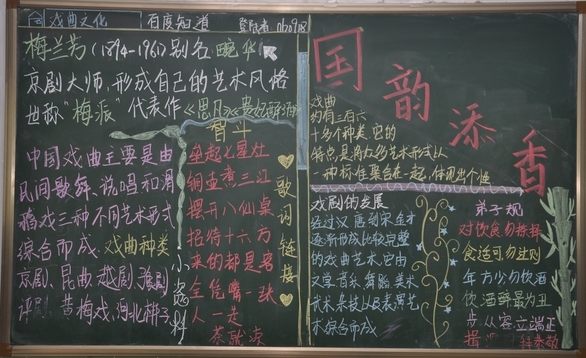 戏曲文化
百度知道
梅兰芳(1894-1961)别名 畹华
京剧大师,形成自己的艺术风格
世称"梅派" 代表作《思凡》《贵妃醉酒》
中国戏曲主要是由
民间歌舞、说唱和滑
稽戏三种不同艺术形式
综合而成 戏曲种类
京剧、昆曲、越剧、豫剧
评剧、黄梅戏、河北梆子
小资料
智斗
垒起七星灶
铜壶煮三江
摆开八仙桌
招待十六方
来的都是客
全凭嘴一张
人一走
茶就凉
歌词链接
国韵添香
戏曲
约有三百六
十多个种类 它的
特点是将众多艺术形式以
一种标准聚合在一起,体现出个性
戏剧的发展
经过汉 唐到宋 金才
逐渐形成比较完整
的戏曲艺术,它由
文学 音乐 舞蹈 美术
武术 杂技 以及表演艺
术综合而成
弟子规
对饮食 勿拣择
食适可 勿过则
年方少 勿饮酒
饮酒醉 最为丑
步从容 立端正
揖 拜恭敬